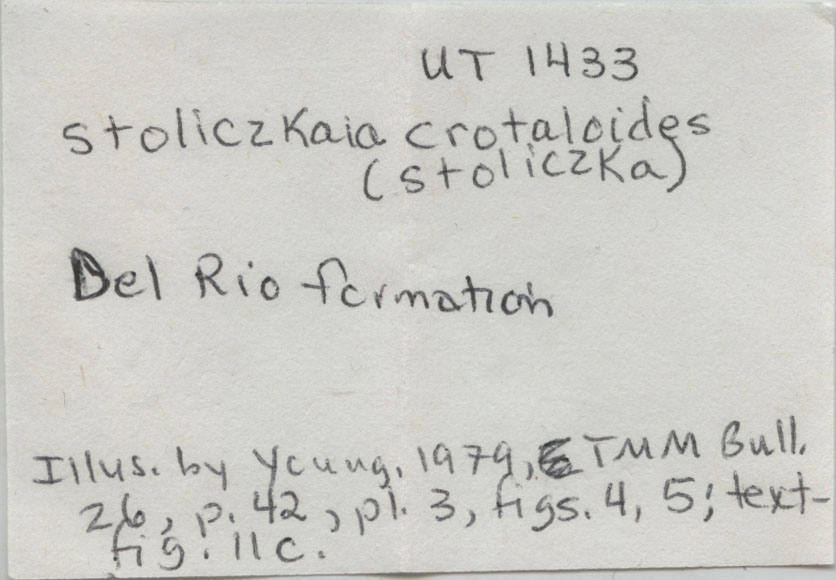 UT 1433
Stoliczkaia crotaloides
(Stoliczka)
Del Rio formation
Illus. by Young, 1979, TMM Bull.
26, p. 42, pl. 3, figs. 4, 5; text-
fig. 11c.